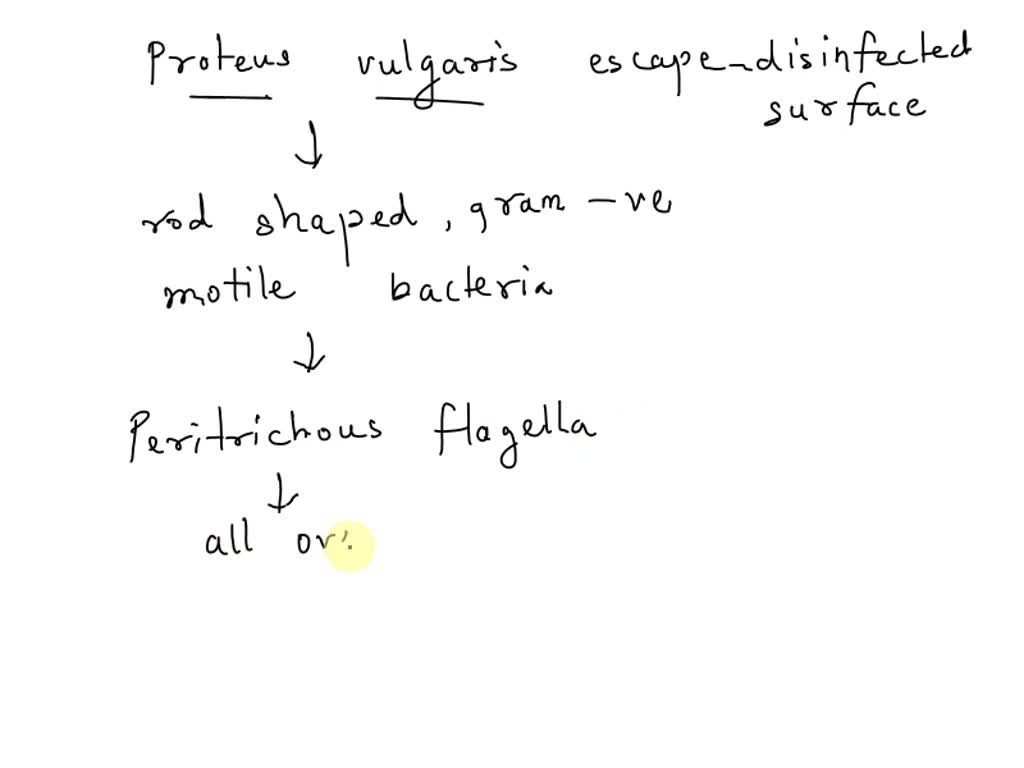 Proteus vulgaris escape-disinfected
surface
↓
rod shaped, gram -ve
motile bacteria
↓
Peritrichous flagella
↓
all ov